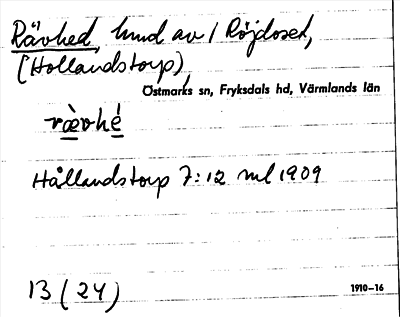 Rävhed, hmd av / Röjdosen,
(Hollandstorp),
Östmarks sn, Fryksdals hd, Värmlands län
rævhé
Hållandstorp 7:12 ml 1909
13 (24)
1910-16